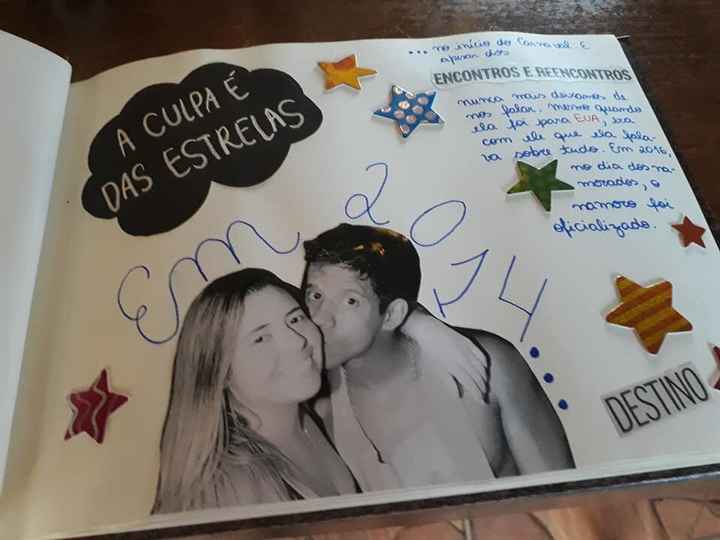 A CULPA É
DAS ESTRELAS
EM 2014...
... no início do Carnaval. E
apesar dos
ENCONTROS E REENCONTROS
nunca mais deixamos de
nos falar, mesmo quando
ela foi para EUA, era
com ele que ela fala-
va sobre tudo. Em 2016,
no dia dos na-
morados, o
namoro foi
oficializado.
DESTINO